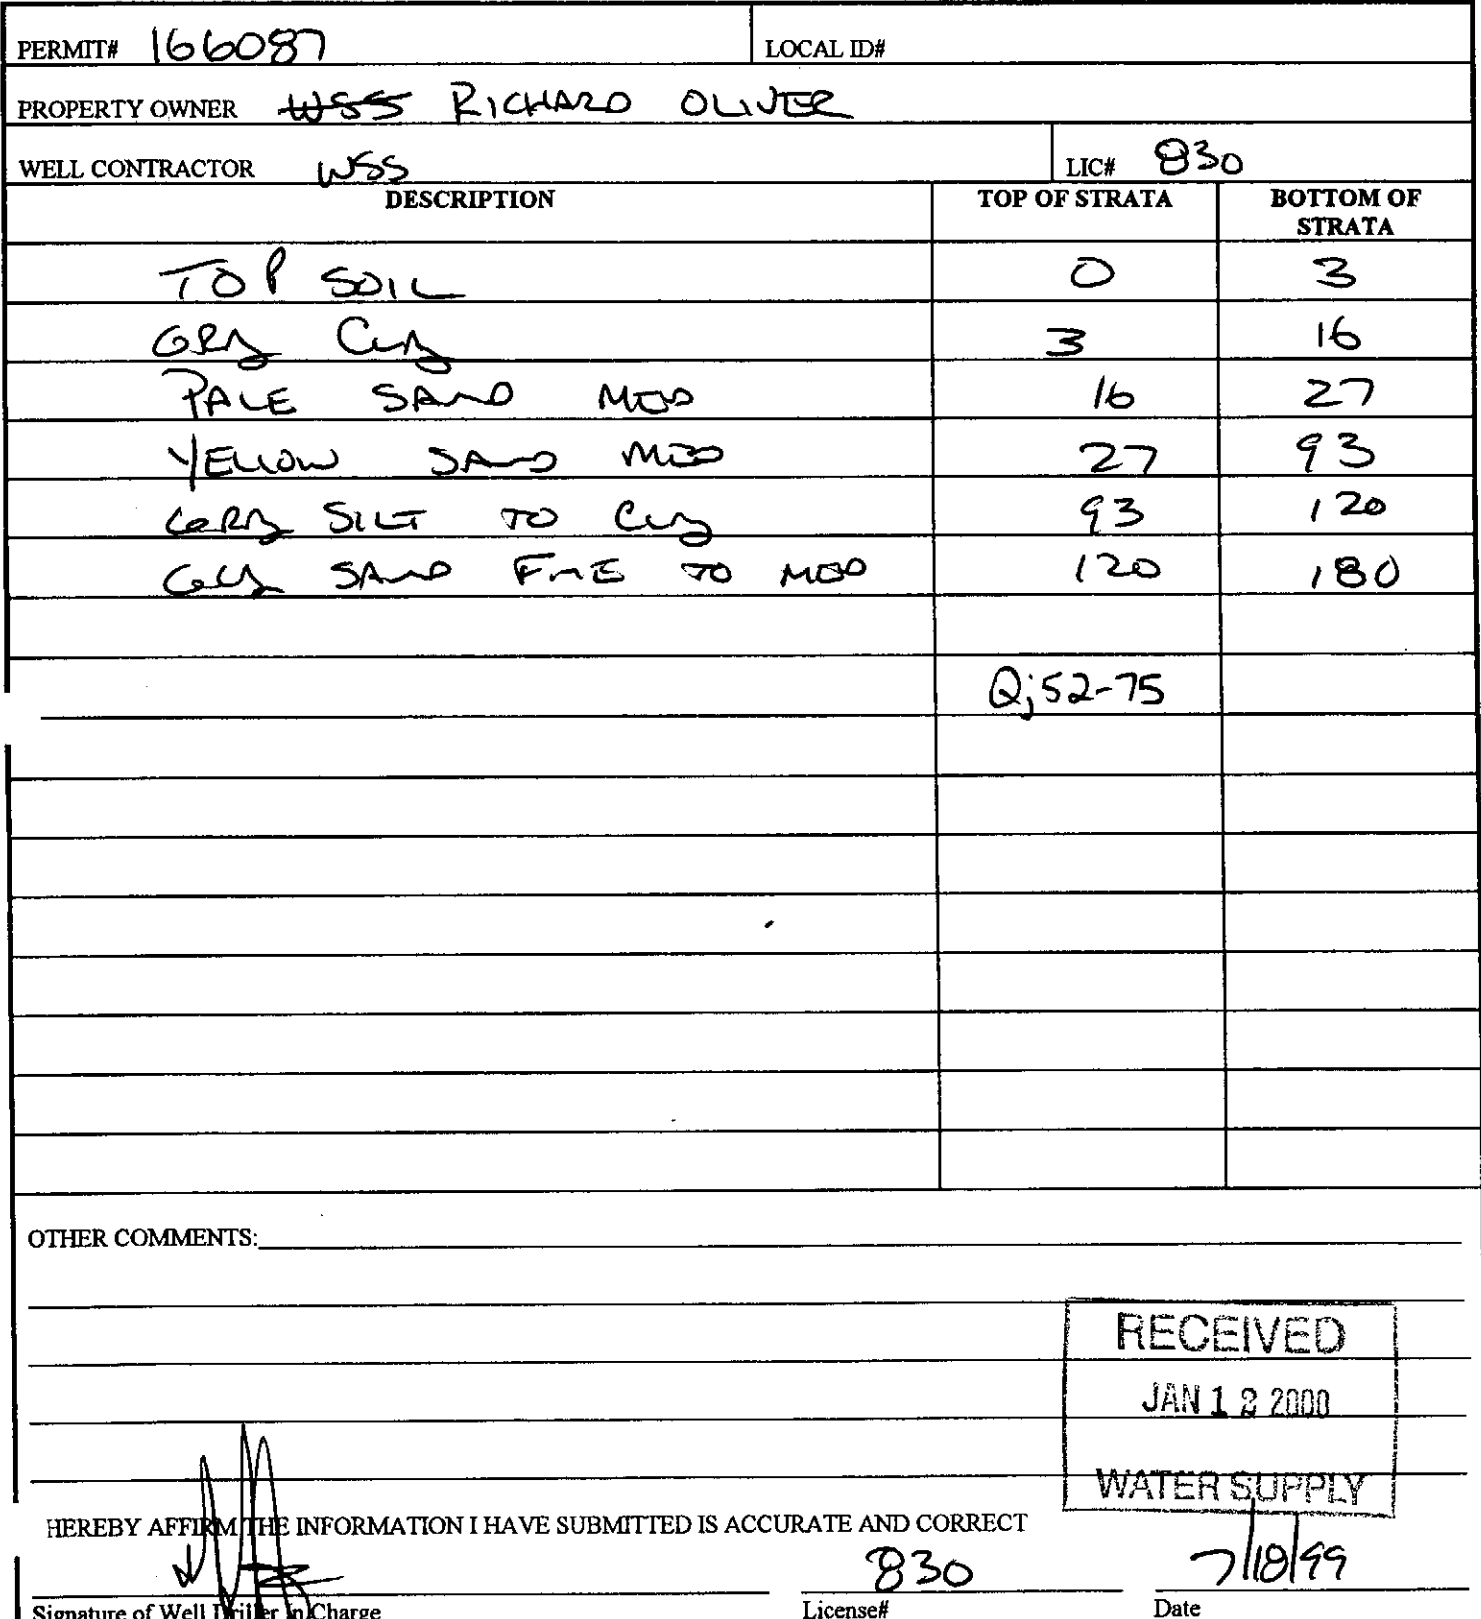 PERMIT# 166087 LOCAL ID#
PROPERTY OWNER WSS RICHARD OLIVER
WELL CONTRACTOR WSS LIC# 830
DESCRIPTION TOP OF STRATA BOTTOM OF STRATA
TOP SOIL 0 3
GRAY CLAY 3 16
PALE SAND MED 16 27
YELLOW SAND MED 27 93
GRAY SILT TO CLAY 93 120
SAND FINE TO MED 120 180
Qj52-75
OTHER COMMENTS:
RECEIVED
JAN 12 2000
WATER SUPPLY
HEREBY AFFIRM THE INFORMATION I HAVE SUBMITTED IS ACCURATE AND CORRECT
830 7/18/99
Signature of Well Driller In Charge License# Date